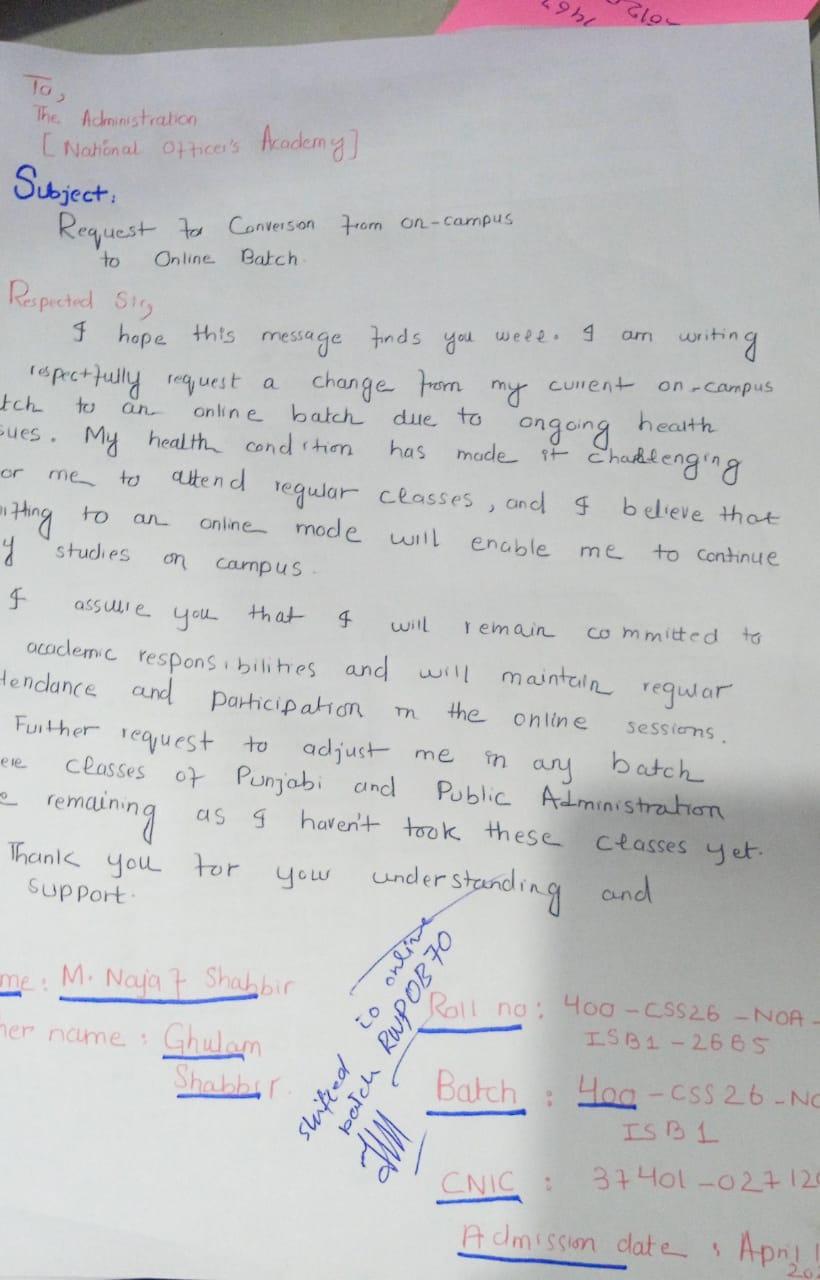 To,
The Administration
[National Officer's Academy]
Subject:
Request for Conversion from on-campus
to Online Batch.
Respected Sir,
I hope this message finds you well. I am writing
respectfully request a change from my current on-campus
tch to an online batch due to ongoing health
sues. My health condition has made it challenging
or me to attend regular classes, and I believe that
ifting to an online mode will enable me to continue
y studies on campus.
I assure you that I will remain committed to
academic responsibilities and will maintain regular
tendance and participation in the online sessions.
Further request to adjust me in any batch
ere classes of Punjabi and Public Administration
e remaining as I haven't took these classes yet.
Thank you for your understanding and
support.
me: M. Najaf Shabbir
her name: Ghulam
Shabbir.
shifted to online
batch RWPOB70
Roll no: 400-CSS26-NOA-
ISB1-2665
Batch: 400-CSS26-NO
ISB1
CNIC: 37401-02712
Admission date: April